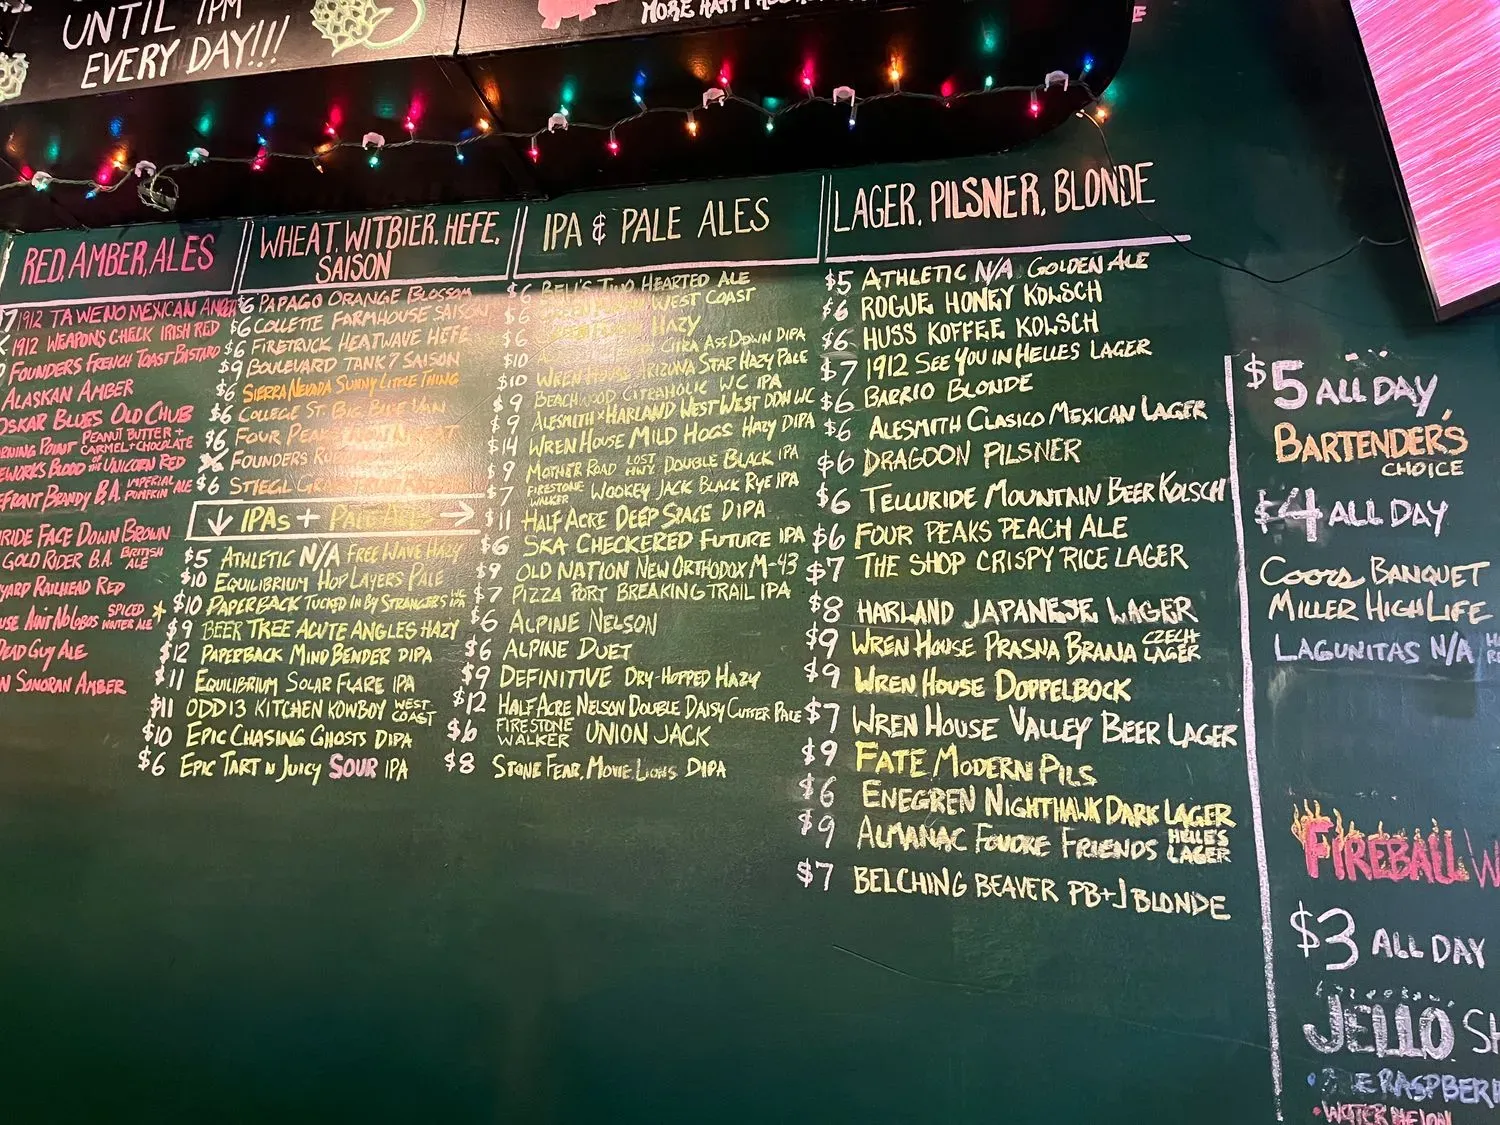 UNTIL 1PM
EVERY DAY!!!
RED, AMBER, ALES
1912 TA WENO MEXICAN AMBER
1912 WEAPONS CHECK IRISH RED
FOUNDERS FRENCH TOAST BASTARD
ALASKAN AMBER
OSKAR BLUES OLD CHUB
PEANUT BUTTER +
CARMEL + CHOCOLATE
BLOOD OF THE UNICORN RED
BRANDY B.A. IMPERIAL PUMPKIN ALE
FACE DOWN BROWN
GOLD RIDER B.A. BRITISH ALE
RAILHEAD RED
AIN'T NO LOBOS SPICED WINTER ALE *
DEAD GUY ALE
SONORAN AMBER
WHEAT, WITBIER, HEFE,
SAISON
$6 PAPAGO ORANGE BLOSSOM
$6 COLLETTE FARMHOUSE SAISON
$6 FIRETRUCK HEATWAVE HEFE
$9 BOULEVARD TANK 7 SAISON
$6 SIERRA NEVADA SUNNY LITTLE THING
$6 COLLEGE ST. BIG BLUE VAN
$6 FOUR PEAKS
FOUNDERS
$6 STIEGL
↓ IPAS + PALE ALES →
$5 ATHLETIC N/A FREE WAVE HAZY
$10 EQUILIBRIUM HOP LAYERS PALE
$10 PAPERBACK TUCKED IN BY STRANGERS WC IPA
$9 BEER TREE ACUTE ANGLES HAZY
$12 PAPERBACK MIND BENDER DIPA
$11 EQUILIBRIUM SOLAR FLARE IPA
$11 ODD13 KITCHEN KOWBOY WEST COAST
$10 EPIC CHASING GHOSTS DIPA
$6 EPIC TART N JUICY SOUR IPA
IPA & PALE ALES
$6 BELL'S TWO HEARTED ALE
$6 WEST COAST
$6 HAZY
$10 CITRA ASS DOWN DIPA
$10 WREN HOUSE ARIZONA STAR HAZY PALE
$9 BEACHWOOD CITRAHOLIC W.C IPA
$9 ALESMITH × HARLAND WEST WEST DDH WC
$14 WREN HOUSE MILD HOGS HAZY DIPA
$9 MOTHER ROAD LOST HWY. DOUBLE BLACK IPA
$7 FIRESTONE WALKER WOOKEY JACK BLACK RYE IPA
$11 HALF ACRE DEEP SPACE DIPA
$6 SKA CHECKERED FUTURE IPA
$9 OLD NATION NEW ORTHODOX M-43
$7 PIZZA PORT BREAKING TRAIL IPA
$6 ALPINE NELSON
$6 ALPINE DUET
$9 DEFINITIVE DRY-HOPPED HAZY
$12 HALF ACRE NELSON DOUBLE DAISY CUTTER PALE
$6 FIRESTONE WALKER UNION JACK
$8 STONE FEAR. MOVIE. LIONS DIPA
LAGER, PILSNER, BLONDE
$5 ATHLETIC N/A GOLDEN ALE
$6 ROGUE HONEY KOLSCH
$6 HUSS KOFFEE KOLSCH
$7 1912 SEE YOU IN HELLES LAGER
$6 BARRIO BLONDE
$6 ALESMITH CLASICO MEXICAN LAGER
$6 DRAGOON PILSNER
$6 TELLURIDE MOUNTAIN BEER KOLSCH
$6 FOUR PEAKS PEACH ALE
$7 THE SHOP CRISPY RICE LAGER
$8 HARLAND JAPANESE LAGER
$9 WREN HOUSE PRASNA BRANA CZECH LAGER
$9 WREN HOUSE DOPPELBOCK
$7 WREN HOUSE VALLEY BEER LAGER
$9 FATE MODERN PILS
$6 ENEGREN NIGHTHAWK DARK LAGER
$9 ALMANAC FOUDRE FRIENDS HELLES LAGER
$7 BELCHING BEAVER PB+J BLONDE
$5 ALL DAY
BARTENDER'S
CHOICE
$4 ALL DAY
COORS BANQUET
MILLER HIGH LIFE
LAGUNITAS N/A
FIREBALL
$3 ALL DAY
JELLO
WATERMELON